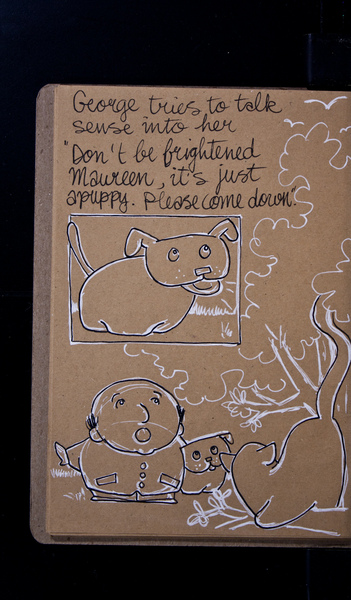 George tries to talk
sense into her
"Don't be frightened
Maureen, it's just
a puppy. Please come down".